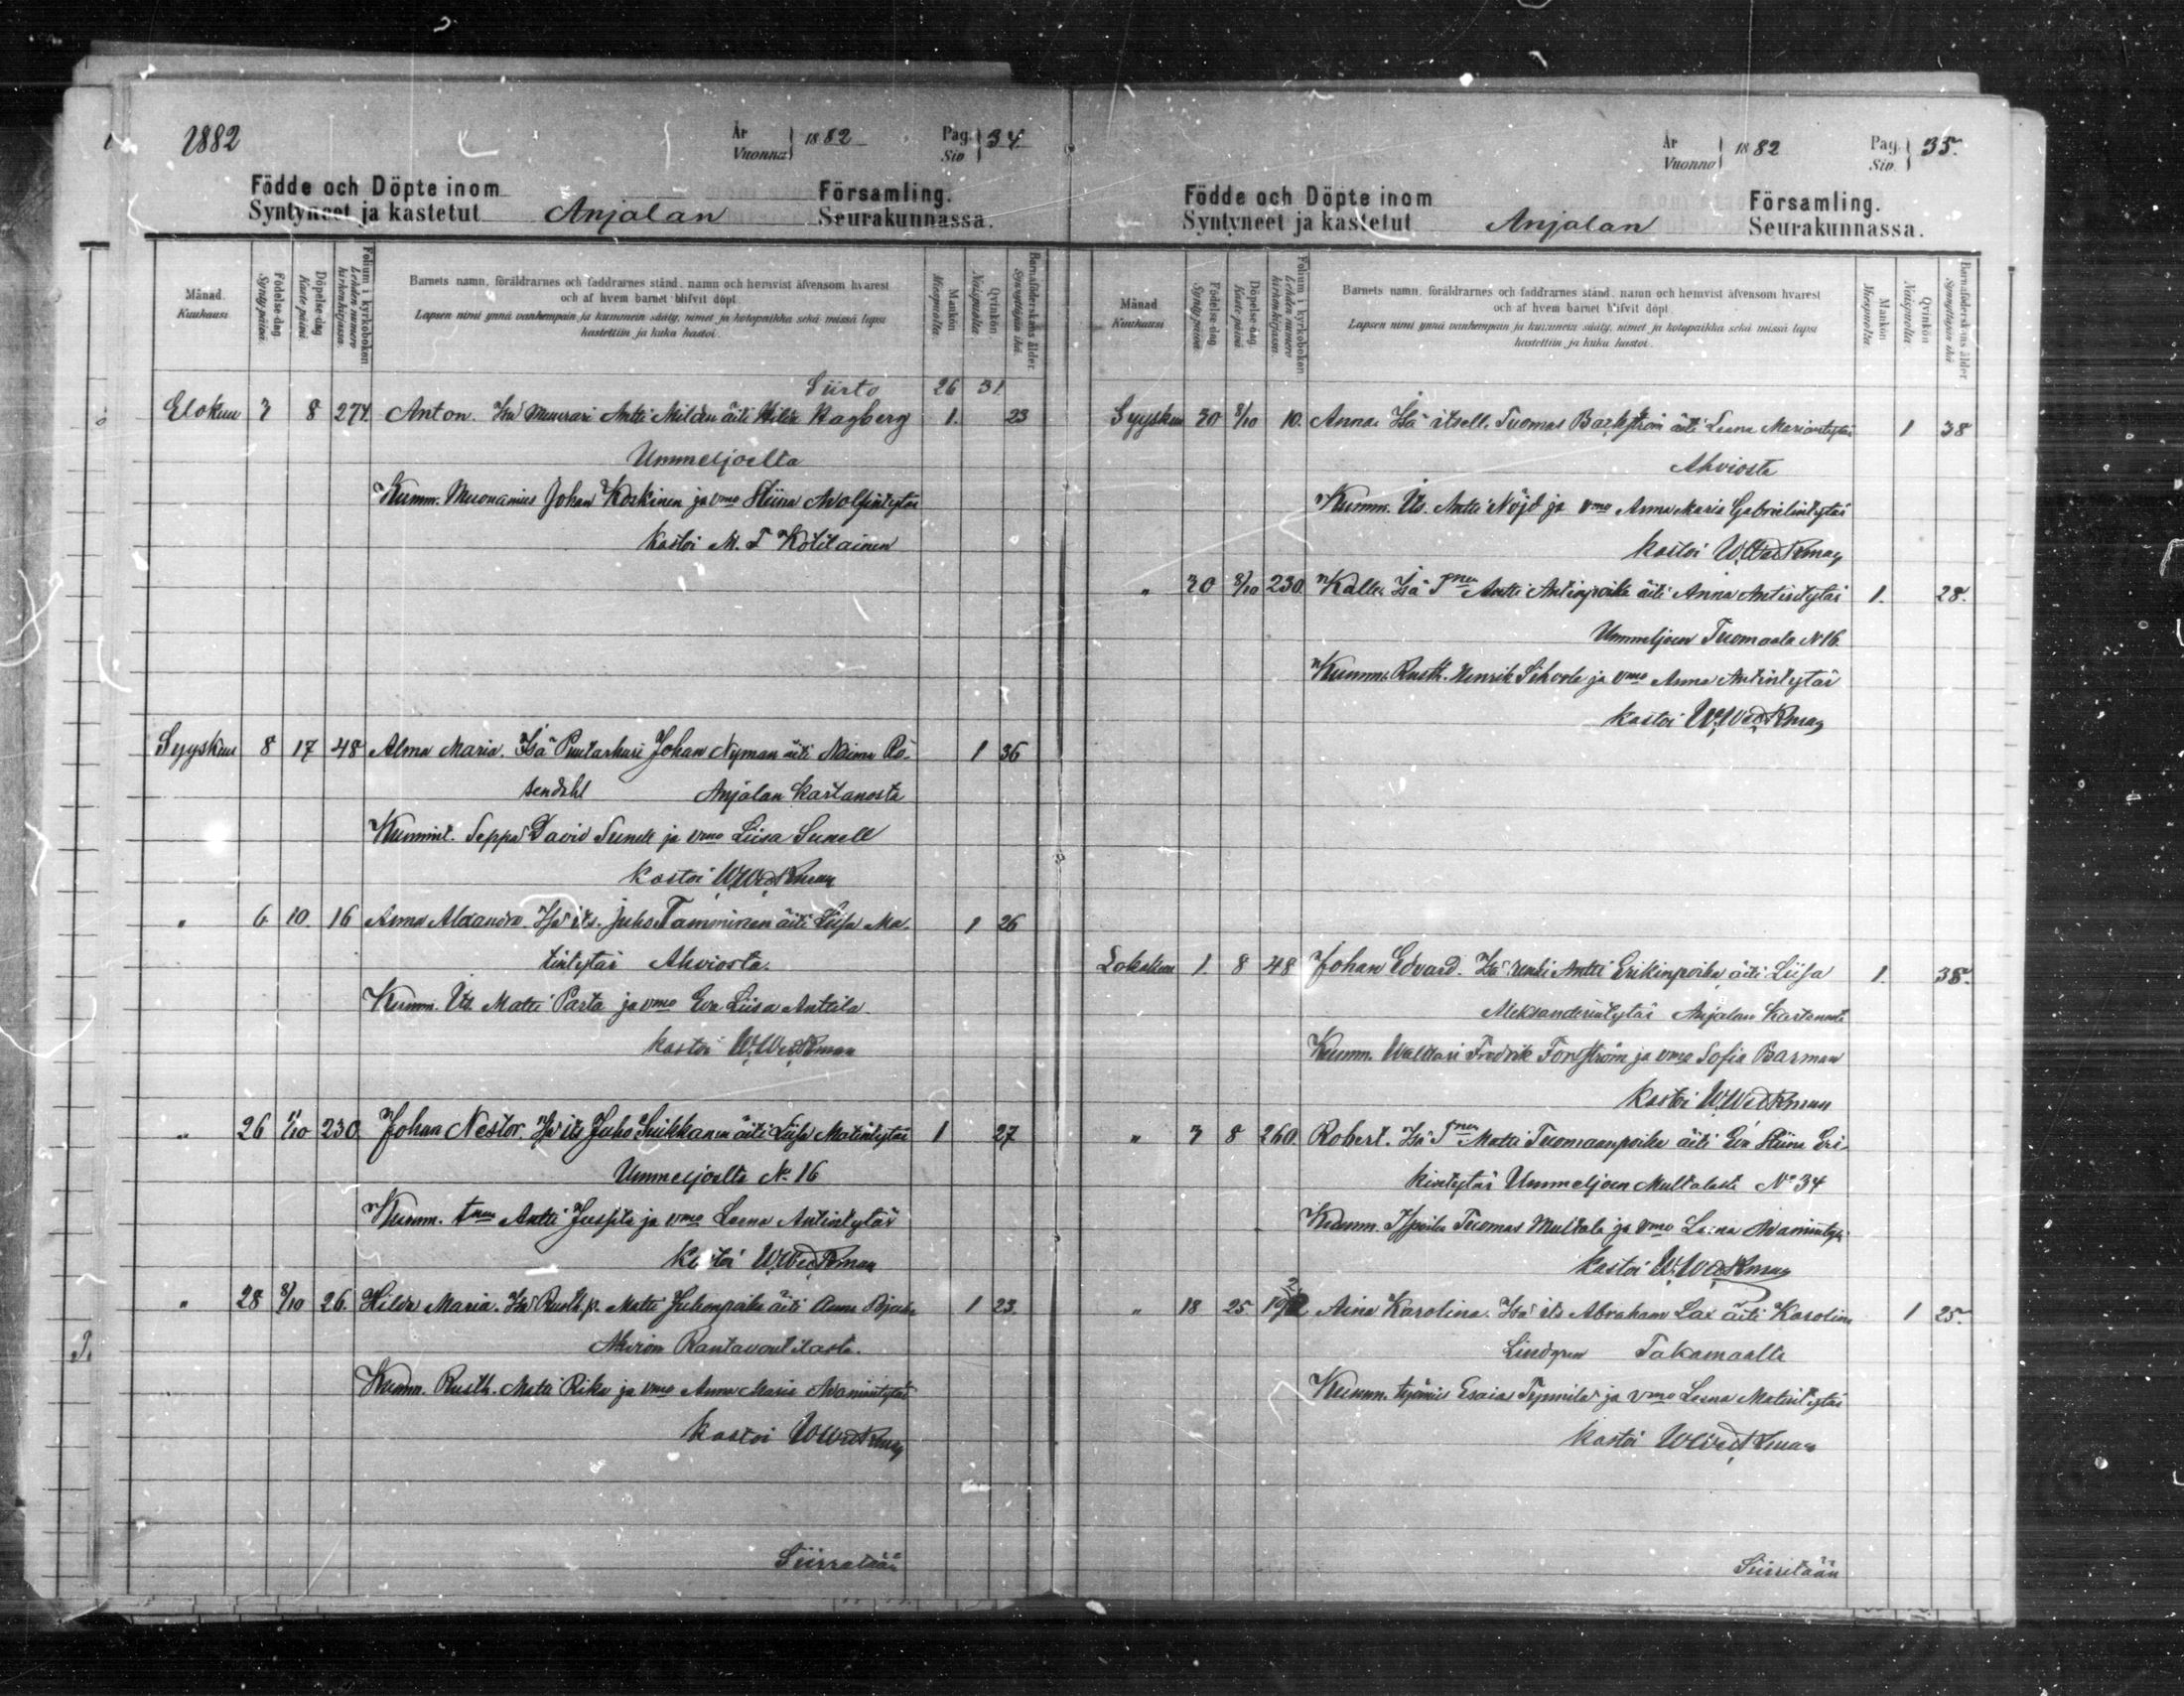 1882
År
Vuonna } 1882
Pag.
Siv. } 34
Födde och Döpte inom
Syntyneet ja kastetut
Anjalan
Församling.
Seurakunnassa.
Månad.
Kuukausi
Födelse-dag
Syntypäivä.
Döpelse-dag
Kaste päivä
Folium i kyrkoboken
Lehden numero kirkonkirjassa.
Barnets namn, föräldrarnes och faddrarnes stånd, namn och hemvist äfvensom hvarest
och af hvem barnet blifvit döpt.
Lapsen nimi ynnä vanhempain ja kummein sääty, nimet ja kotopaikka sekä missä lapsi
kastettiin ja kuka kastoi.
Mankön
Miespuolta.
Qvinkön
Naispuolta.
Barnaföderskans ålder
Synnyttäjän ikä.
Siirto 26 31
Elokuu 7 8 274. Anton. Isä Muurari Antti Milden äiti Hilda Hagberg 1. 23
Ummeljoelta
Kumm. Muonamies Johan Koskinen ja vmo Stiina Adolfintytär
Kastoi M. T Kotilainen
Syyskuu 8 17 48 Alma Maria. Isä Puutarhuri Johan Nyman äiti Naima Ro- 1 36
sendahl Anjalan Kartanosta
Kummit. Seppä David Sunell ja vmo Liisa Sunell
Kastoi W.Weckman
" 6 10. 16 Anna Alexandra. Isä its. Juho Tamminen äiti Liisa Ma- 1 26
tintytär Ahviosta.
Kumm. Its. Matti Parta ja vmo Eva Liisa Anttila
kastoi W.Weckman
" 26 1/10 230 Johan Nestor. Isä its Juho Suikkanen äiti Liisa Matintytär 1 27
Ummeljoelta No 16
Kumm. Antti Juspila ja vmo Leena Antintytär
Kastoi W.Weckman
" 28 8/10 26. Hilda Maria. Isä Rusth.p. Matti Juhonpoika äiti Anna 1 23.
Ahvion Rantavoutilasta.
Kumm. Rusth. Matti Riko ja vmo Anna Maria Adamintytär
Kastoi W.Weckman
Siirretään
År
Vuonna } 1882
Pag.
Siv. } 35.
Födde och Döpte inom
Syntyneet ja kastetut
Anjalan
Församling.
Seurakunnassa.
Månad
Kuukausi
Födelse-dag
Syntypäivä.
Döpelse-dag
Kaste päivä
Folium i kyrkoboken
Lehden numero kirkonkirjassa.
Barnets namn, föräldrarnes och faddrarnes stånd, namn och hemvist äfvensom hvarest
och af hvem barnet blifvit döpt.
Lapsen nimi ynnä vanhempain ja kummein sääty, nimet ja kotopaikka sekä missä lapsi
kastettiin ja kuka kastoi.
Mankön
Miespuolta
Qvinkön
Naispuolta
Barnaföderskans ålder
Synnyttäjän ikä
Syyskuu 30 8/10 10. Anna. Isä itsell. Tuomas Backström äiti Leena 1 38
Ahviosta
Kumm. Its. Antti Nöjd ja vmo Anna Maria Gabrielintytär
kastoi W.Weckman
" 30 8/10 230. Kalle. Isä Antti Antinpoika äiti Anna Antintytär 1. 28.
Ummeljoen Tuomaala N 16.
Kumm. Rusth. Henrik Sihvola ja vmo Anna Antintytär
kastoi W.Weckman
Lokakuu 1. 8 48 Johan Edvard. Isä renki Antti Erikinpoika äiti Liisa 1. 38.
Aleksanderintytär Anjalan Kartanosta
Kumm. Fredrik Forsström ja vmo Sofia Barman
kastoi W.Weckman
" 3 8 260. Robert. Isä Matti Tuomaanpoika äiti Eva Stiina Eri-
kintytär Ummeljoen Multalasta No 34
Kumm. Tuomas Multala ja vmo Leena Adamintytär
kastoi W.Weckman
" 18 25 Aina Karolina. Isä its Abraham Lax äiti Karolina 1 25.
Lindgren Takamaalta
Kumm. työmies Esaias ja vmo Leena Matintytär
kastoi W.Weckman
Siirretään